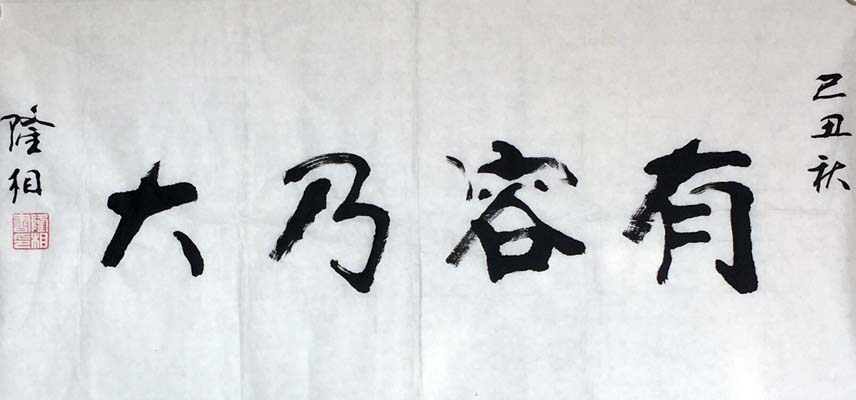 己丑秋
有容乃大
隆相